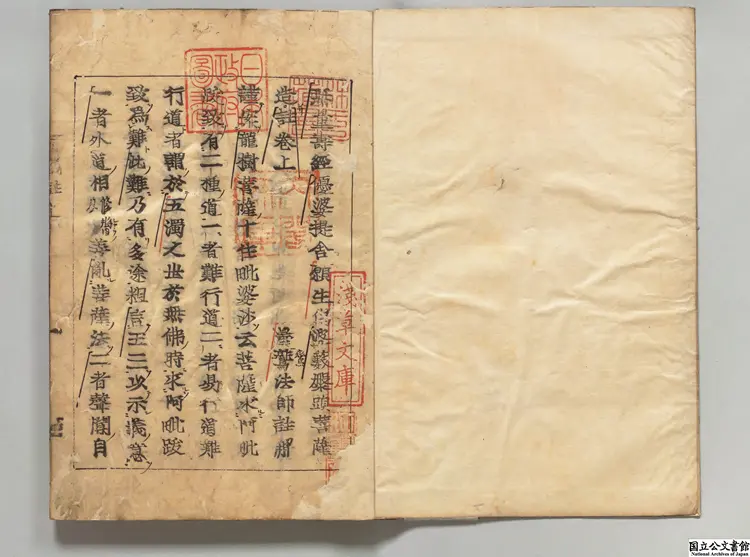 無量壽經優婆提舍願生偈婆藪槃頭菩薩
造註卷上 曇鸞法師註解
謹案龍樹菩薩十住毗婆沙云菩薩求阿毗
跋致有二種道一者難行道二者易行道難
行道者謂於五濁之世於無佛時求阿毗跋
致爲難此難乃有多途粗言五三以示義意
一者外道相善亂菩薩法二者聲聞自
日本政府圖書
淺草文庫
国立公文書館
National Archives of Japan